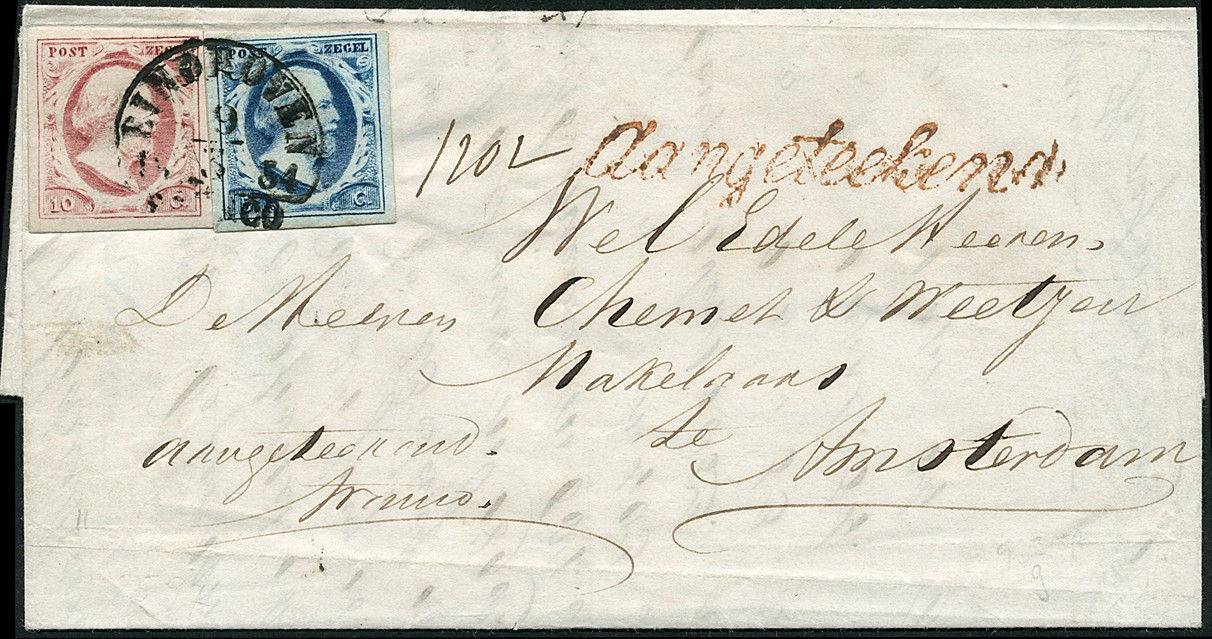 POST ZEGEL
POST ZEGEL
EINDHOVEN
9
54
CO
10 C.
5 C.
1202 Aangeteekend
Wel Edele Heeren,
De Heeren Chemet & Weetjen
Makelaars
te
Amsterdam
aangeteekend.
franco.